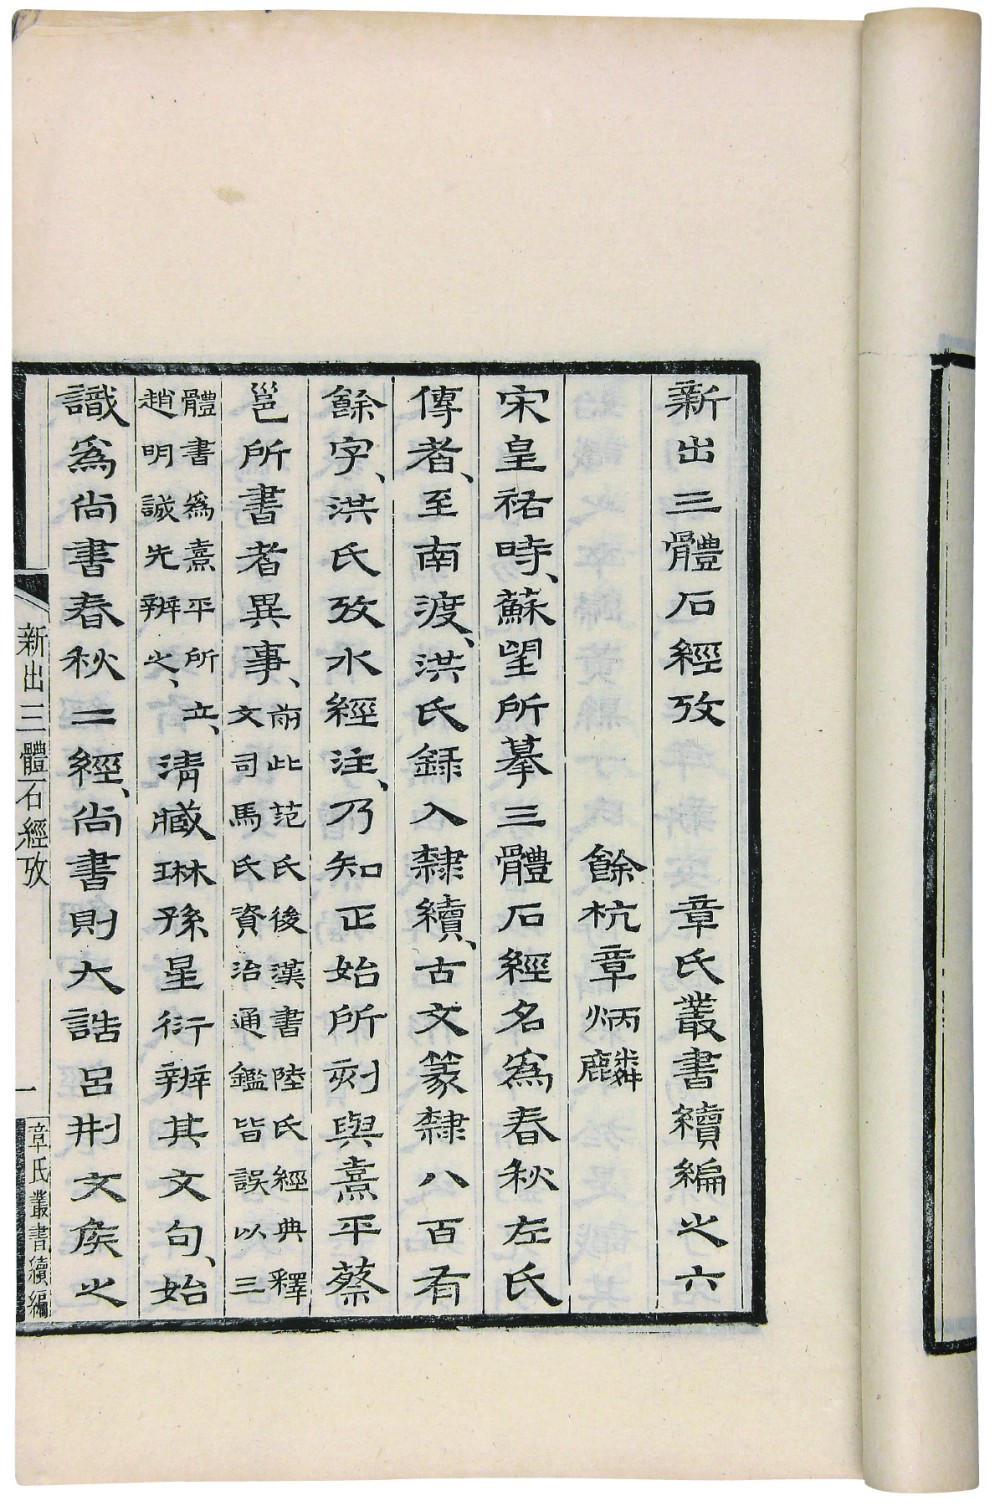 新出三體石經攷　章氏叢書續編之六
餘杭章炳麟
宋皇祐時、蘇望所摹三體石經名爲春秋左氏
傳者、至南渡、洪氏録入隸續、古文篆隸八百有
餘字、洪氏攷水經注、乃知正始所刻與熹平蔡
邕所書者異事、
前此范氏後漢書陸氏經典釋
文司馬氏資治通鑑皆誤以三
體書爲熹平所立、
趙明誠先辨之、
清臧琳孫星衍辨其文句、始
識爲尙書春秋二經、尙書則大誥呂刑文矦之
新出三體石經攷
一
章氏叢書續編